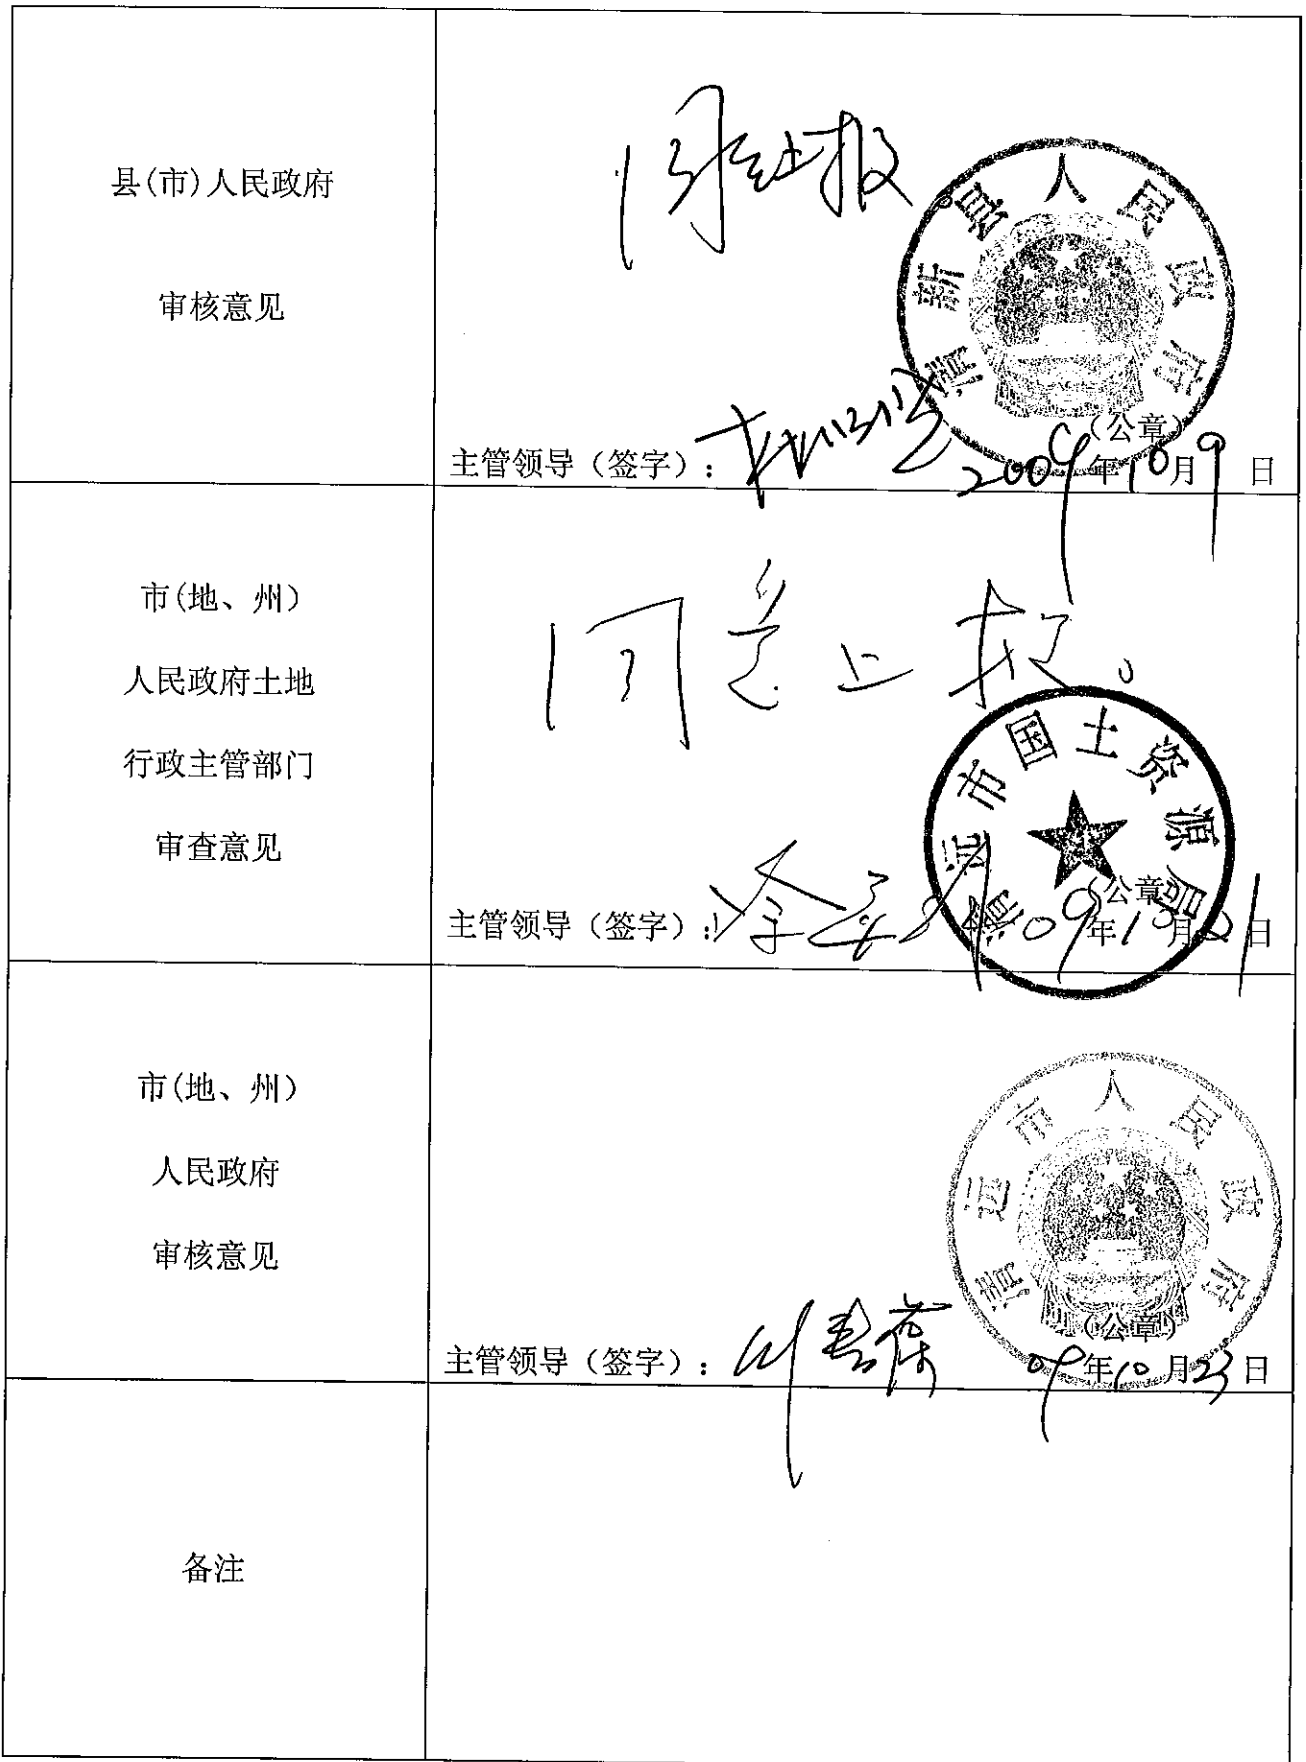 县(市)人民政府
审核意见
同意上报。
清新县人民政府
主管领导（签字）：
（公章）
2009年10月9日
市(地、州）
人民政府土地
行政主管部门
审查意见
同意上报。
清远市国土资源局
主管领导（签字）：
（公章）
09年10月21日
市(地、州）
人民政府
审核意见
清远市人民政府
主管领导（签字）：
（公章）
09年10月23日
备注